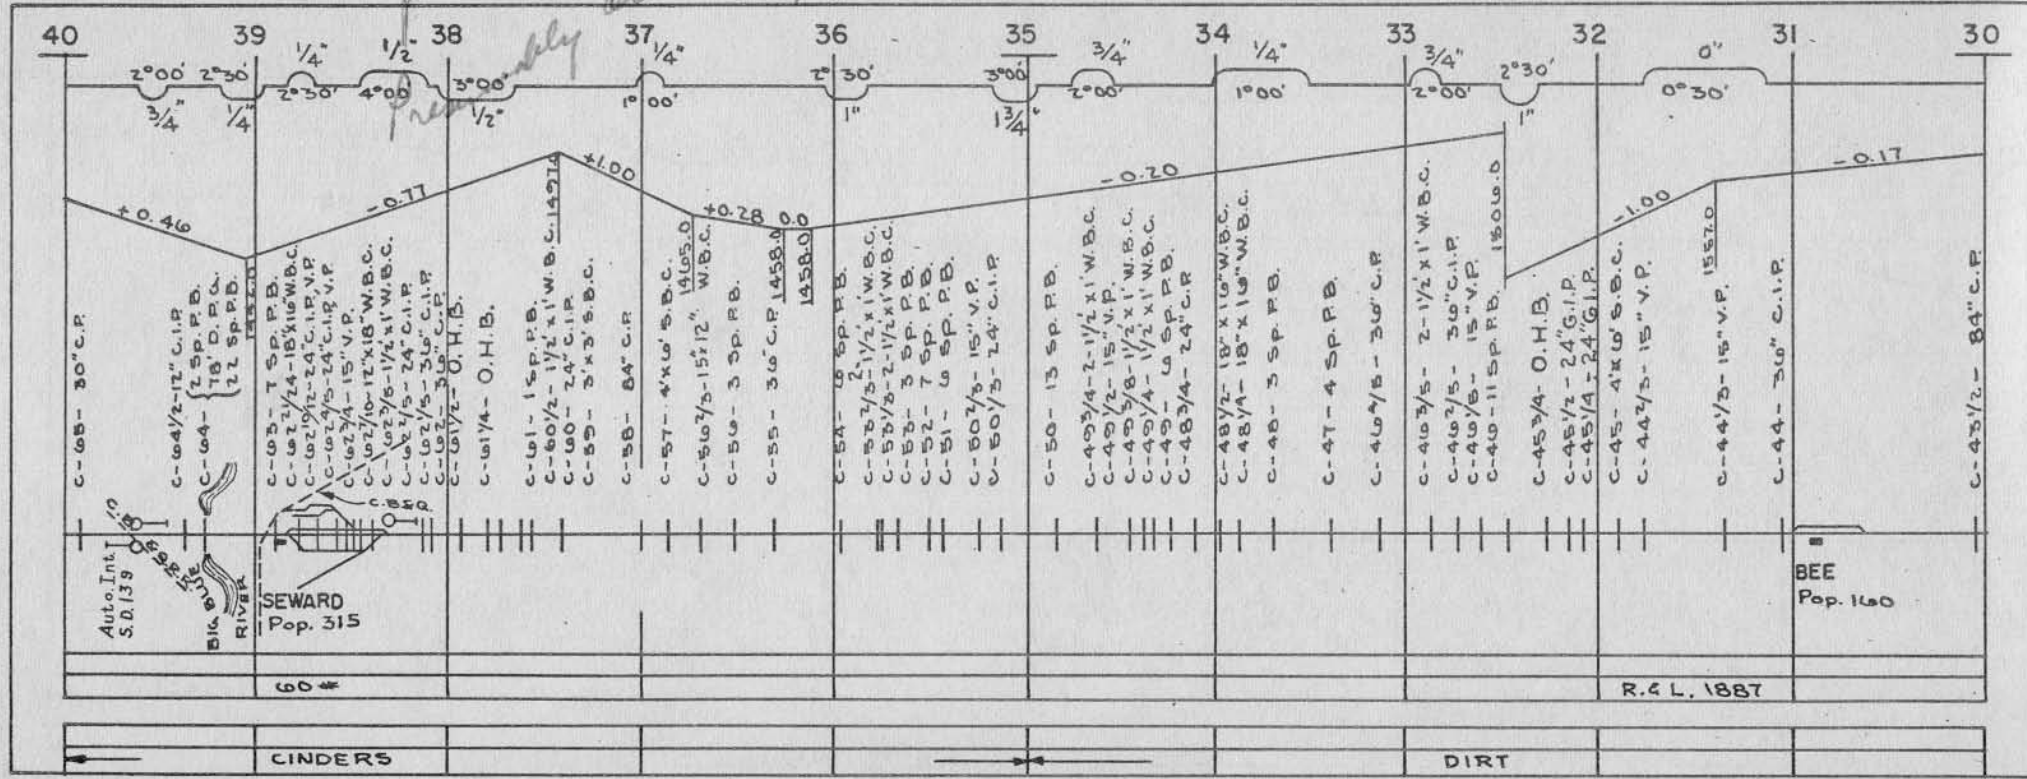 40 39 38 37 36 35 34 33 32 31 30
Presumably
2°00' 2°30' 1/4" 1/2" 3°00' 1/4" 2°30' 3°00' 3/4" 1/4" 3/4" 2°30' 0"
3/4" 1/4" 2°30' 4°00' 1/2" 1°00' 1" 1 3/4" 2°00' 1°00' 2°00' 1" 0°30'
+0.46 -0.77 +1.00 +0.28 0.0 -0.20 -1.00 -0.17
C-65- 30" C.P.
C-64 1/2-12" C.I.P.
C-64- 2 Sp. P.B.
78' D. P. G.
22 Sp. P.B.
C-63- 7 Sp. P.B.
C-62 3/4- 15" V.P.
C-62 2/5- 24" C.I.P.
C-62 1/5- 36" C.I.P.
C-62- 36" C.P.
C-61 1/2- O.H.B.
C-61 1/4- O.H.B.
C-61- 1 Sp. P.B.
C-60 1/2- 1 1/2' x 1' W.B.C.
1497.0
C-60- 24" C.I.P.
C-59- 3' x 3' S.B.C.
C-58- 84" C.P.
C-57- 4' x 6' S.B.C.
1465.0
C-56 2/3-15"x12" W.B.C.
C-56- 3 Sp. P.B.
C-55- 36" C.P.
1458.0
1458.0
C-54- 6 Sp. P.B.
C-53 2/3-2-1 1/2' x 1' W.B.C.
C-53 1/3-2-1 1/2' x 1' W.B.C.
C-53- 3 Sp. P.B.
C-52- 7 Sp. P.B.
C-51- 6 Sp. P.B.
C-50 2/3- 15" V.P.
C-50 1/3- 24" C.I.P.
C-50- 13 Sp. P.B.
C-49 3/4-2-1 1/2' x 1' W.B.C.
C-49 1/2- 15" V.P.
C-49 3/8-1 1/2' x 1' W.B.C.
C-49 1/4- 1 1/2' x 1' W.B.C.
C-49- 6 Sp. P.B.
C-48 3/4- 24" C.P.
C-48 1/2- 18" x 16" W.B.C.
C-48 1/4- 18" x 16" W.B.C.
C-48- 3 Sp. P.B.
C-47- 4 Sp. P.B.
C-46 4/5- 36" C.P.
C-46 3/5- 2-1 1/2' x 1' W.B.C.
C-46 2/5- 36" C.I.P.
C-46 1/5- 15" V.P.
C-46- 11 Sp. P.B.
C-45 3/4- O.H.B.
C-45 1/2- 24" G.I.P.
C-45 1/4- 24" G.I.P.
C-45- 4' x 6' S.B.C.
C-44 2/3- 15" V.P.
C-44 1/3- 15" V.P.
C-44- 36" C.I.P.
C-43 1/2- 84" C.P.
C.B.&Q.
Auto. Int.
S.D.139
BIG BLUE
RIVER
SEWARD
Pop. 315
BEE
Pop. 160
60#
R.& L. 1887
CINDERS
DIRT